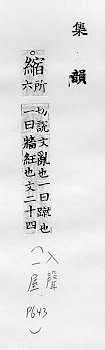 集韻
。縮所六
切說文亂也一曰蹴也
一曰牆紅也文二十四
(入聲
一屋
P643)